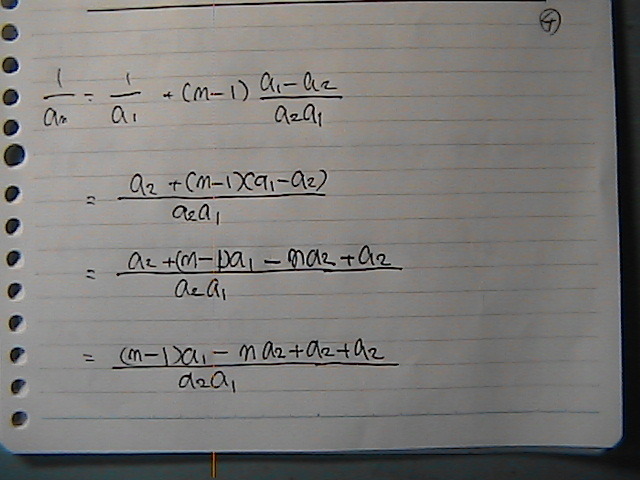 ④
1/aₙ = 1/a₁ + (n-1) (a₁-a₂)/(a₂a₁)
= (a₂ + (n-1)(a₁-a₂))/(a₂a₁)
= (a₂ + (n-1)a₁ - na₂ + a₂)/(a₂a₁)
= ((n-1)a₁ - na₂ + a₂ + a₂)/(a₂a₁)